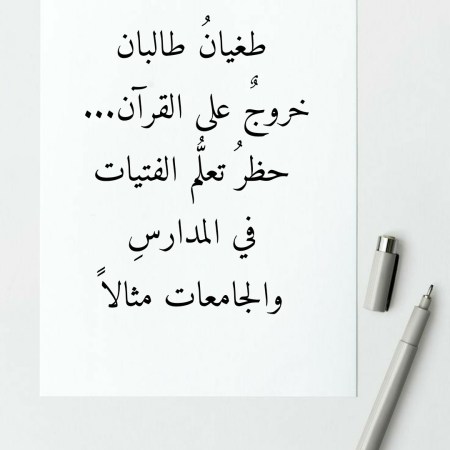 طغيانُ طالبان
خروجٌ على القرآن...
حظرُ تعلُّم الفتيات
في المدارسِ
والجامعات مثالاً